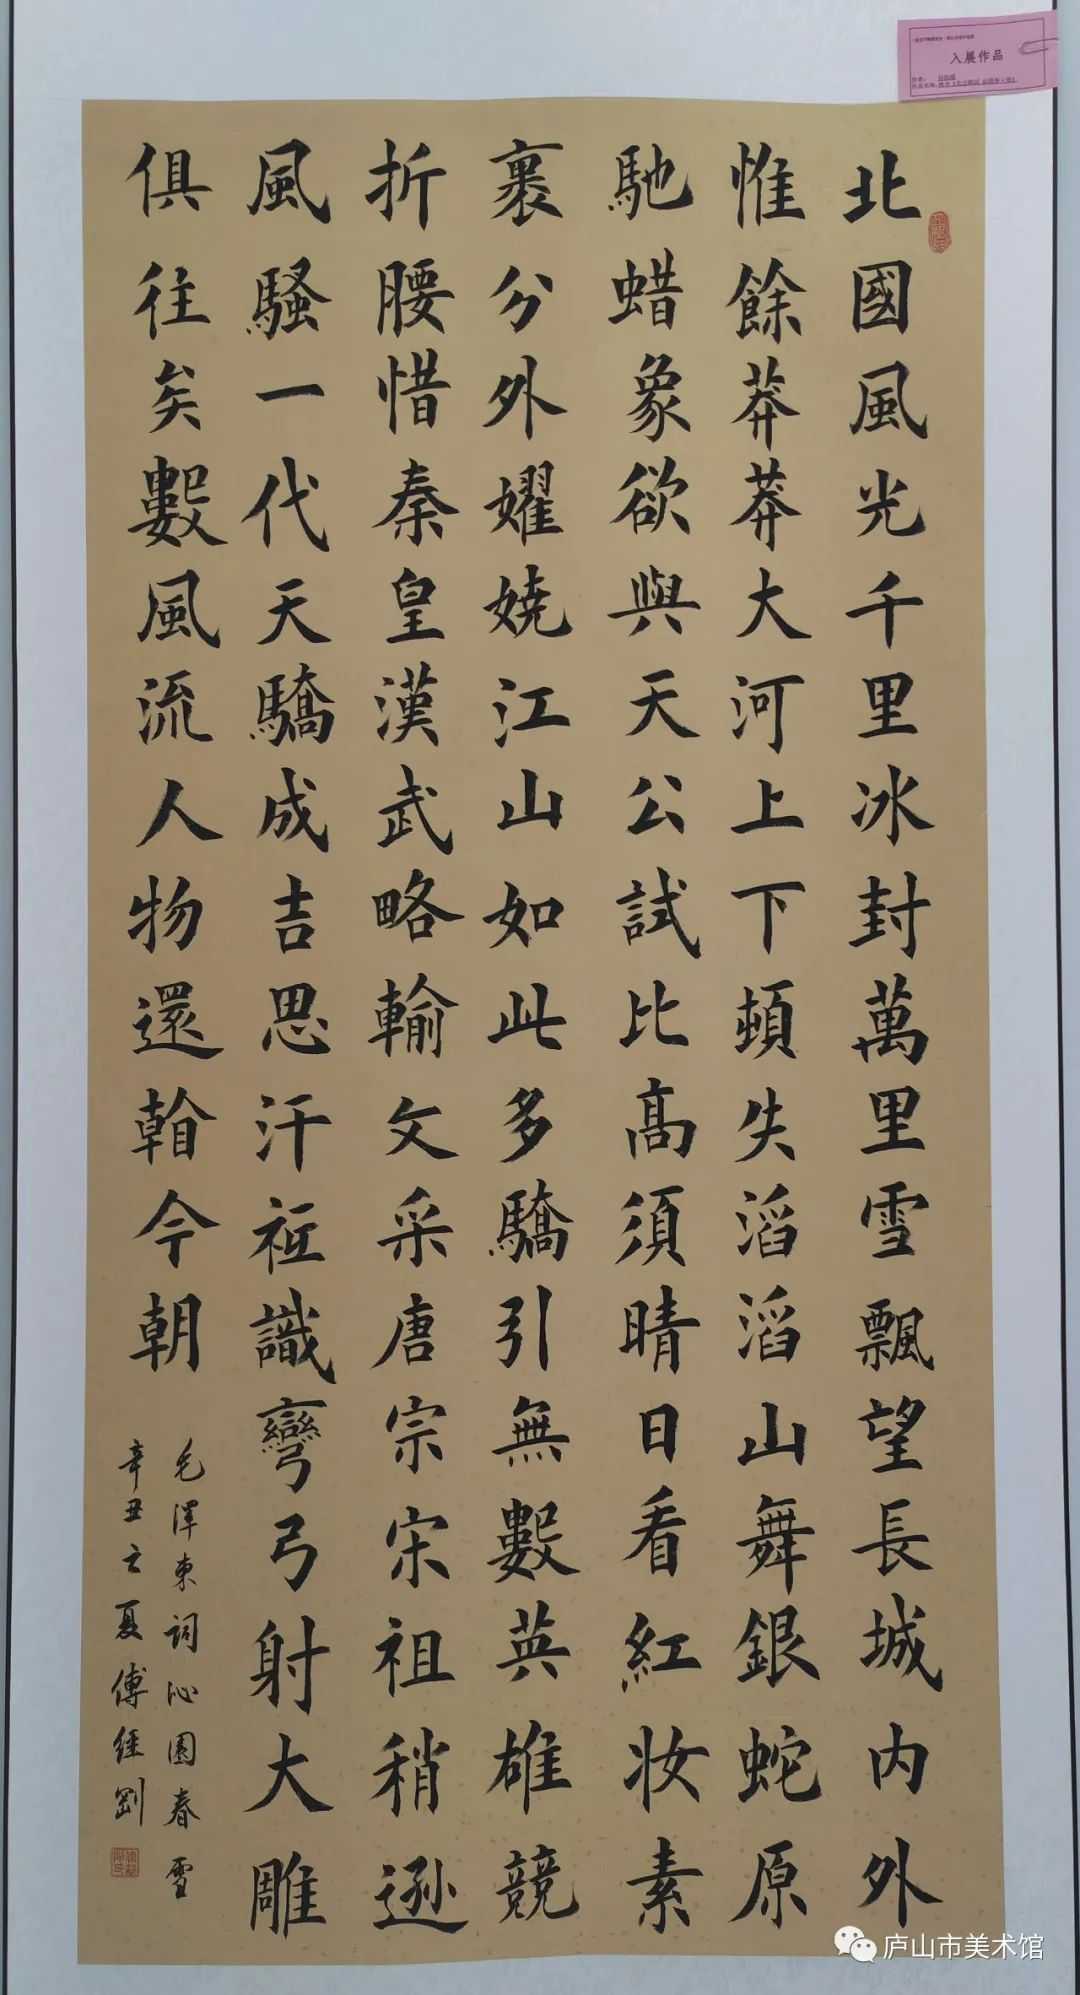 入展作品
北國風光千里冰封萬里雪飄望長城内外
惟餘莽莽大河上下頓失滔滔山舞銀蛇原
馳蜡象欲與天公試比高須晴日看紅妆素
裹分外嬥娆江山如此多驕引無數英雄競
折腰惜秦皇漢武略輸文采唐宗宋祖稍遜
風騷一代天驕成吉思汗祗識彎弓射大雕
俱往矣數風流人物還看今朝
毛澤東詞沁園春雪
辛丑之夏傅經劉
庐山市美术馆